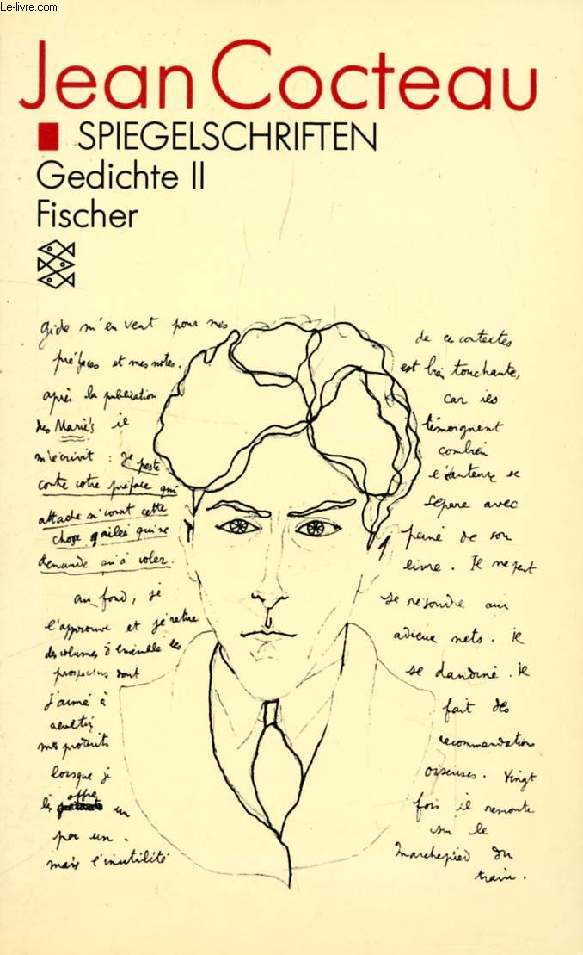 Le-livre.com
Jean Cocteau
SPIEGELSCHRIFTEN
Gedichte II
Fischer
Gide m'en veut pour mes
préfaces et mes notes.
après la publication
des Mariés il
m'écrivit : Je peste
contre votre préface qui
attache s'avant cette
chose qui ne
demande qu'à voler.
au fond, je
l'approuve et je retire
des volumes
prospectus dont
j'aimé à
mes produits
lorsque je
les offre un
par un.
mais l'inutilité
de ce contextes
est très touchante,
car ils
témoignent
combien
l'auteur se
sépare avec
peine de son
livre. Il ne peut
se résoudre aux
adieux nets. Il
se dandine. Il
fait des
recommandations
oiseuses. Vingt
fois il remonte
sur le
marchepied du
train.